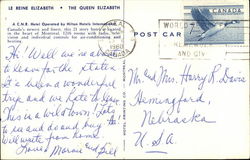 LE REINE ELIZABETH • THE QUEEN ELIZABETH
A C.N.R. Hotel Operated by Hilton Hotels International
Canada's newest and finest, this 21 story hotel is
in the heart of Montreal. 1216 rooms with radio, tele-
vision and individual controls for air-conditioning and
heating.
POST CARD
CANADA
WORLD
1960
Hi. Well we're about
to leave for the states
It's been a wonderful
trip and we hate to leave
This is a wild town. Lots
to see and do and buy.
Will write from home
Love Marnie and Bill
Mr. and Mrs. Harry R. Davis
Hemingford,
Nebraska
U.S.A.